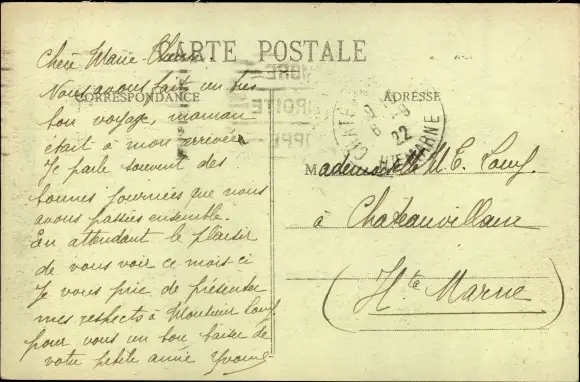 CARTE POSTALE
CORRESPONDANCE
ADRESSE
Chère Marie
Nous avons fait un très
bon voyage, maman
était à mon arrivée
Je parle souvent des
bonnes journées que nous
avons passées ensemble.
En attendant le plaisir
de vous voir ce mois ci
Je vous prie de présenter
mes respects à Monsieur
pour vous un bon baiser de
votre petite amie Yvonne
Mademoiselle M. T.
à Chateauvillain
(Hte Marne)
22
HTE MARNE
DROITE